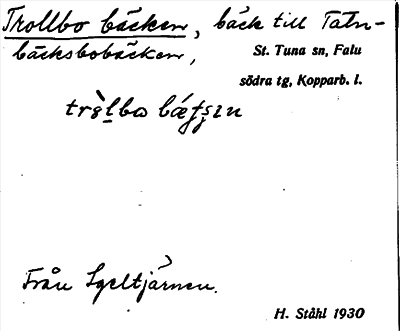 Trollbo bäcken, bäck till Tätn-
bäcksbobäcken,
St. Tuna sn, Falu
södra tg, Kopparb. l.
Från Igeltjärnen.
H. Ståhl 1930